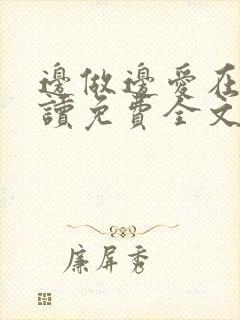 邊做邊愛在
讀免費全文
廉屏秀